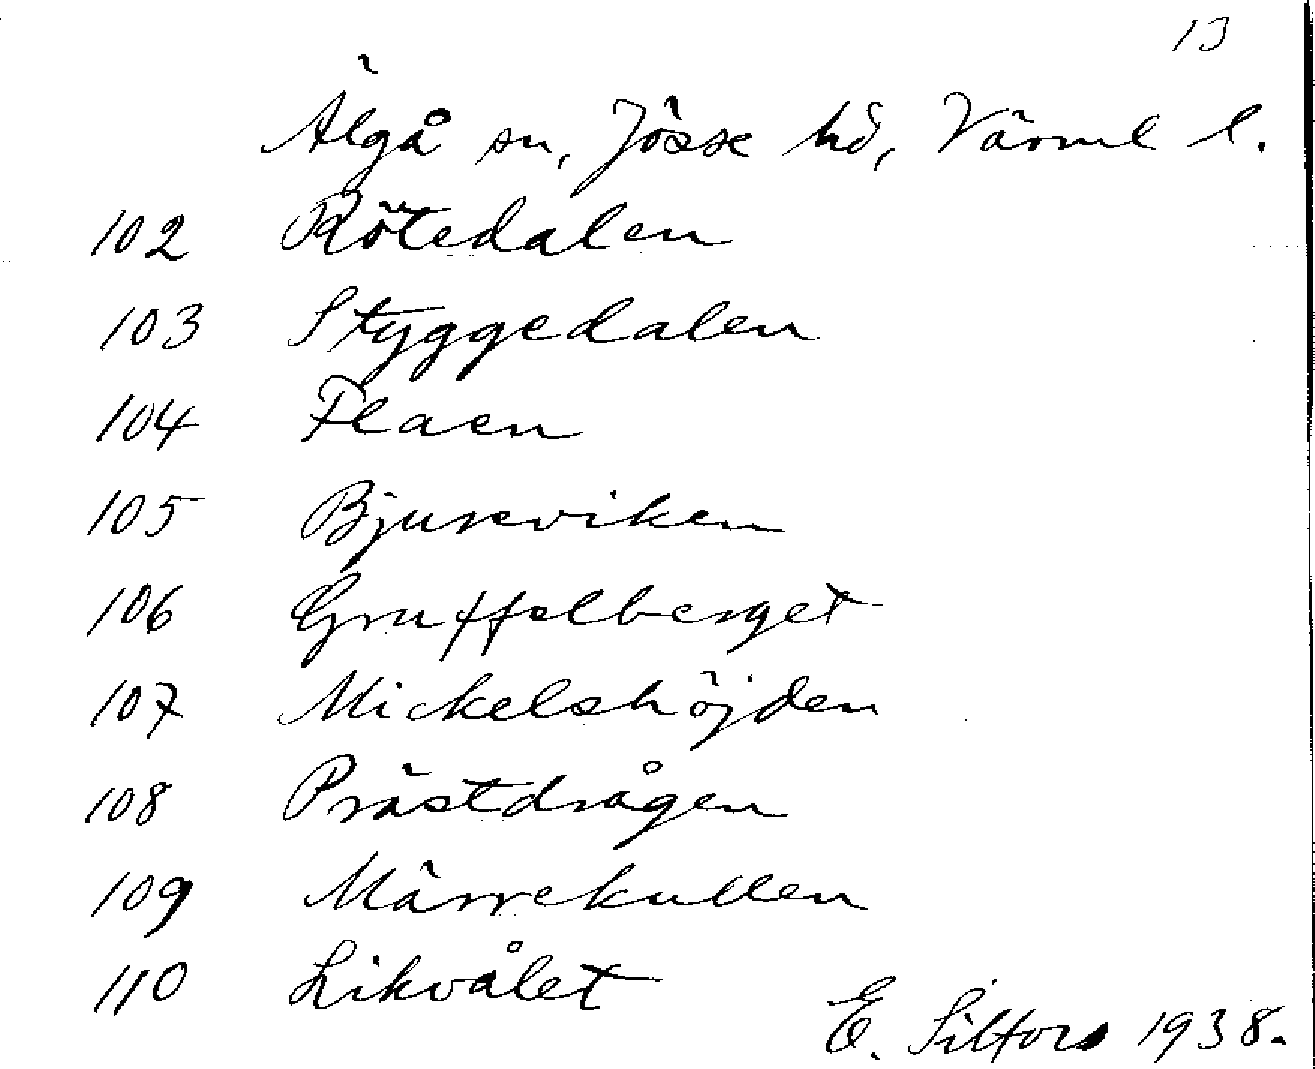 13
Älgå sn, Jösse hd, Värml l.
102 Rötedalen
103 Styggedalen
104 Flaen
105 Bjurseviken
106 Gruffelberget
107 Mickelshöjden
108 Prästdrågen
109 Märrekullen
110 Likvålet
E. Silfors 1938.